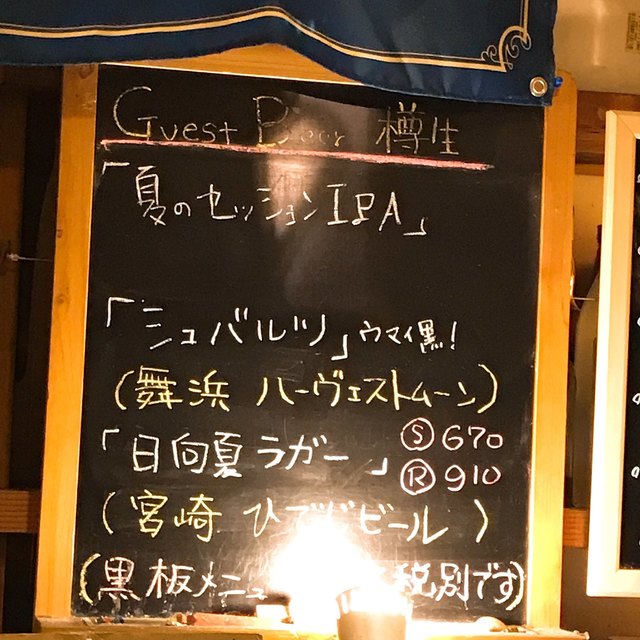 Guest Beer 樽生
「夏のセッションIPA」
「シュバルツ」ウマイ黒!
(舞浜 ハーヴェストムーン)
「日向夏ラガー」 Ⓢ670
Ⓡ910
(宮崎 ひでじビール)
(黒板メニュ 税別です)